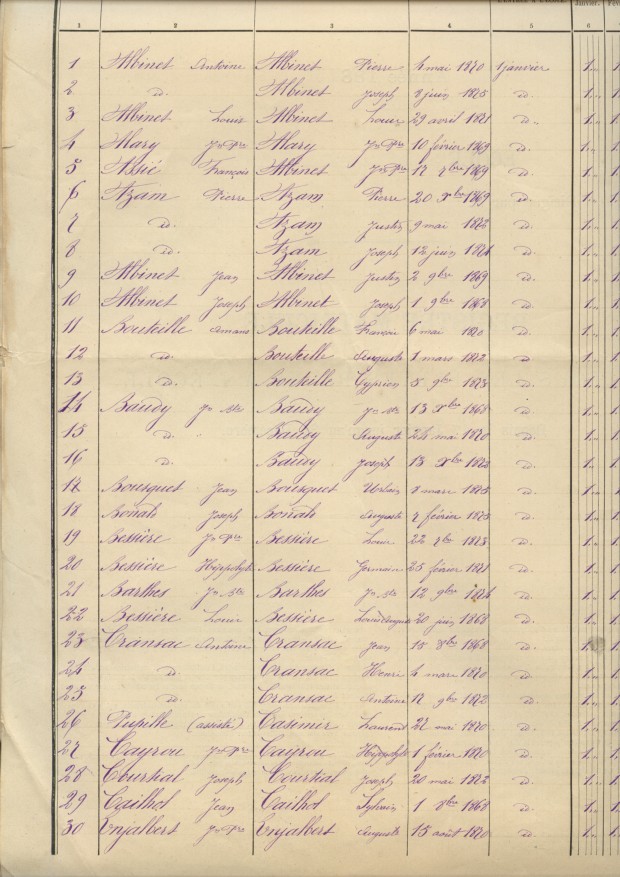 Janvier.
1 2 3 4 5 6
1 Albinet Antoine Albinet Pierre 4 mai 1870 1 janvier 1"
2 d. Albinet Joseph 8 juin 1875 d. 1"
3 Albinet Louis Albinet Louis 29 avril 1871 d. 1"
4 Alary Jn Pre Alary Jn Pre 10 février 1869 d. 1"
5 Assié François Albinet Jn Pre 17 7bre 1869 d. 1"
6 Azam Pierre Azam Pierre 20 Xbre 1869 d. 1"
7 d. Azam Justin 9 mai 1872 d. 1"
8 d. Azam Joseph 12 juin 1874 d. 1"
9 Albinet Jean Albinet Justin 2 9bre 1869 d. 1"
10 Albinet Joseph Albinet Joseph 1 9bre 1868 d. 1"
11 Bouteille Amans Bouteille François 6 mai 1870 d. 1"
12 d. Bouteille Auguste 1 mars 1872 d. 1"
13 d. Bouteille Cyprien 5 9bre 1873 d. 1"
14 Baudy Jn Bte Baudy Jn Bte 13 Xbre 1868 d. 1"
15 d. Baudy Auguste 24 mai 1870 d. 1"
16 d. Baudy Joseph 13 Xbre 1872 d. 1"
17 Bousquet Jean Bousquet Urbain 8 mars 1875 d. 1"
18 Bonafs Joseph Bonafs Auguste 7 février 1873 d. 1"
19 Bessière Jn Pre Bessière Louis 22 7bre 1873 d. 1"
20 Bessière Hippolyte Bessière Germain 25 février 1871 d. 1"
21 Barthes Jn Bte Barthes Jn Bte 12 9bre 1874 d. 1"
22 Bessière Louis Bessière Louis Auguste 20 juin 1868 d. 1"
23 Cransac Antoine Cransac Jean 15 8bre 1868 d. 1"
24 d. Cransac Henri 4 mars 1870 d. 1"
25 d. Cransac Antoine 17 9bre 1872 d. 1"
26 Pupille (assisté) Casimir Laurent 27 mai 1870 d. 1"
27 Cayrou Jn Pre Cayrou Hippolyte 1 février 1870 d. 1"
28 Courtial Joseph Courtial Joseph 20 mai 1872 d. 1"
29 Cailhol Jean Cailhol Sylvain 1 8bre 1868 d. 1"
30 Enjalbert Jn Pre Enjalbert Auguste 15 août 1870 d. 1"